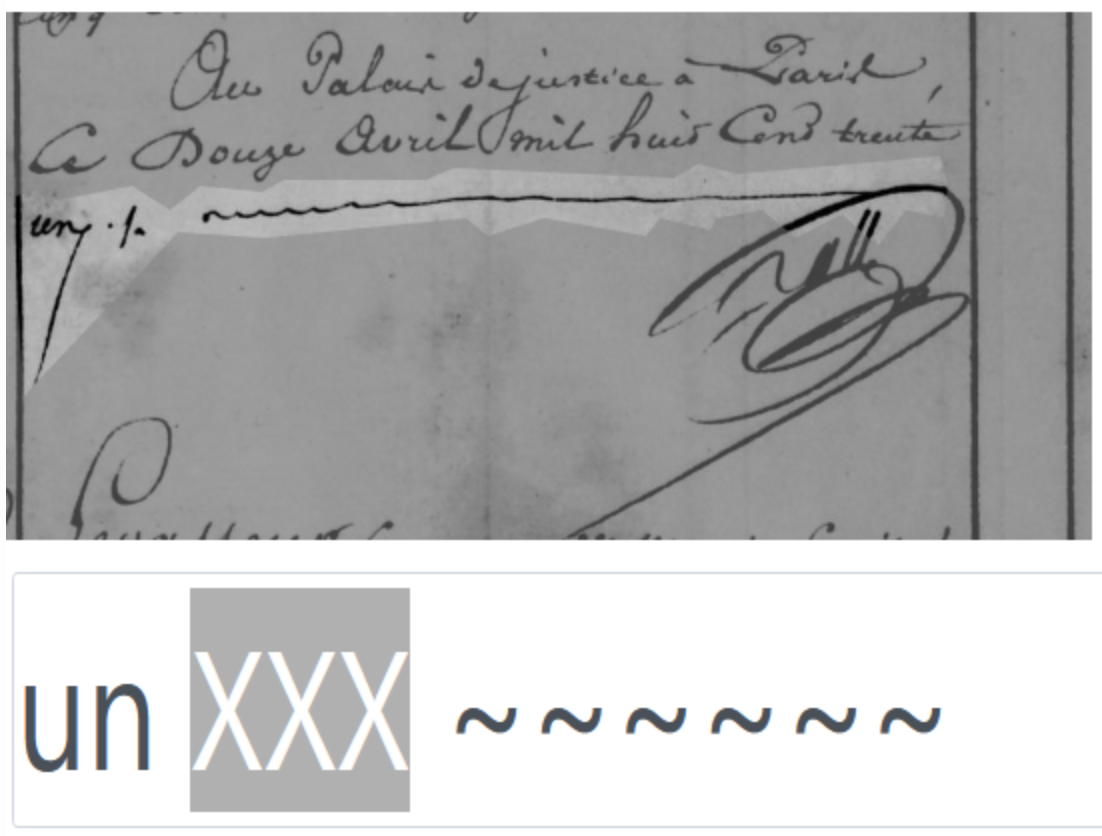 Au Palais de justice à Paris,
Ce Douze Avril mil huit Cent trente
un ./.
un XXX ~ ~ ~ ~ ~ ~